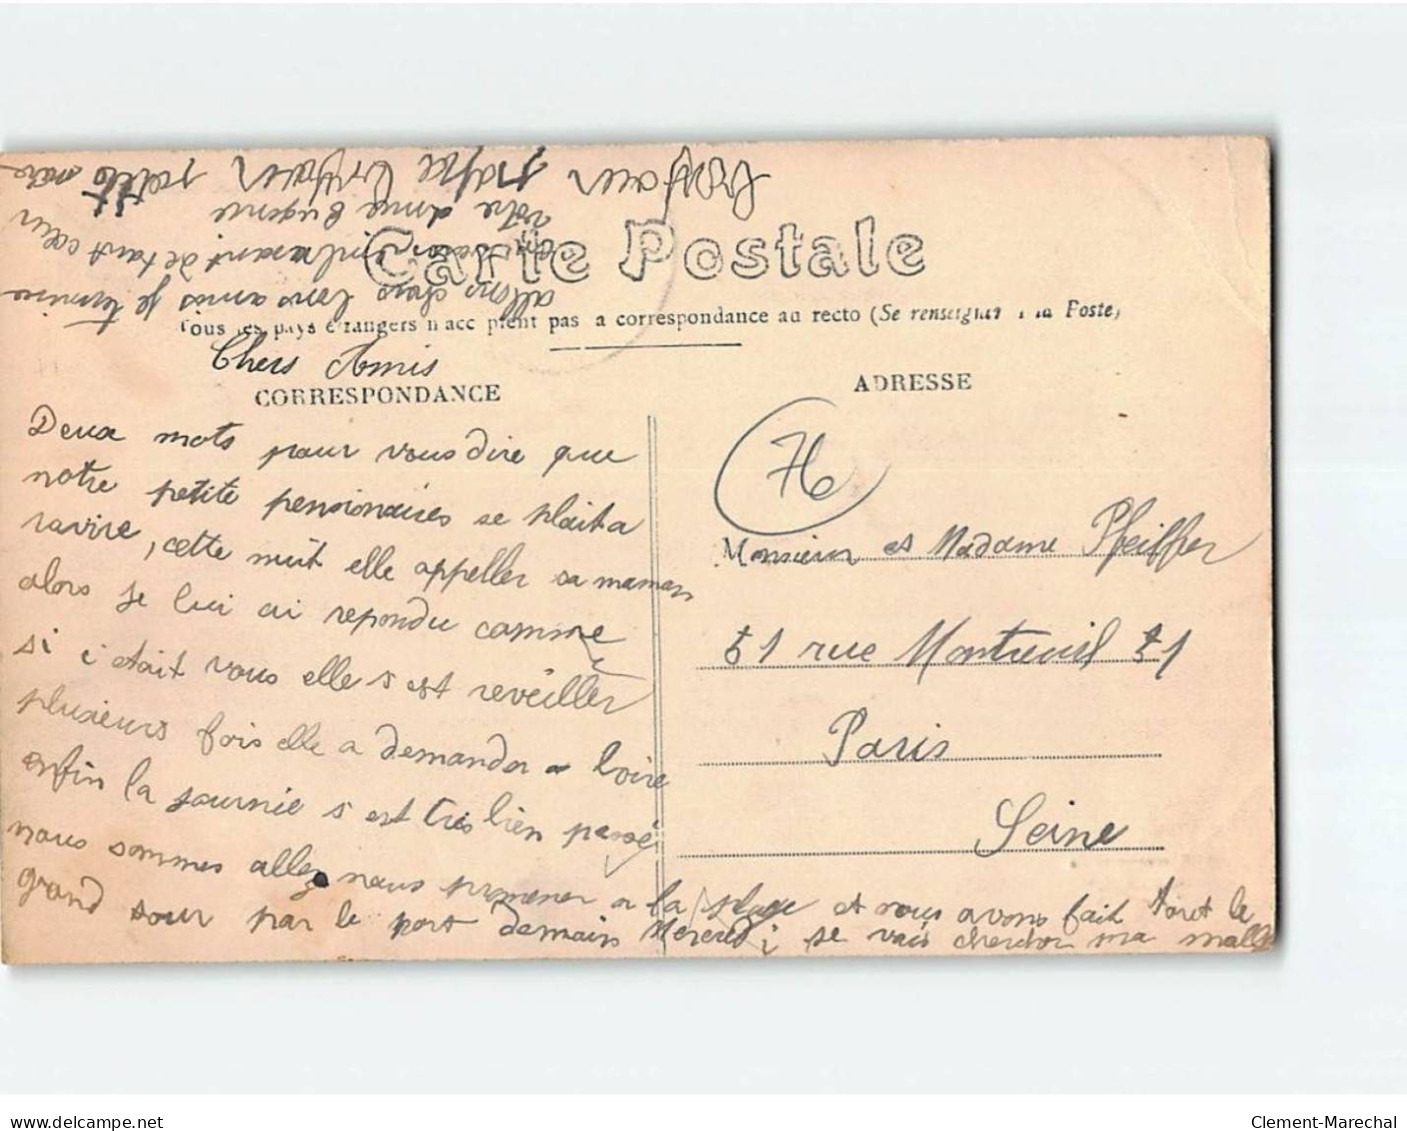 Carte Postale
Tous les pays étrangers n'acceptent pas la correspondance au recto (Se renseigner à la Poste)
CORRESPONDANCE
ADRESSE
Chers Amis
Deux mots pour vous dire que
notre petite pensionaires se plait a
ravire, cette nuit elle appeller sa maman
alors je lui ai repondu comme
si c'etait vous elle s est reveiller
plusieurs fois elle a demander a boire
enfin la journée s est tres bien passé
nous sommes allez nous promener a la plage et nous avons fait tout le
grand tour par le port demain Mercredi je vais chercher ma malle
allons chers bons amis je termine
en vous embrasant de tout cœur
votre amie Eugenie
bonjour petite mère
papa bonjour
76
Monsieur et Madame Pfeiffer
51 rue Montreuil 51
Paris
Seine
www.delcampe.net
Clement-Marechal